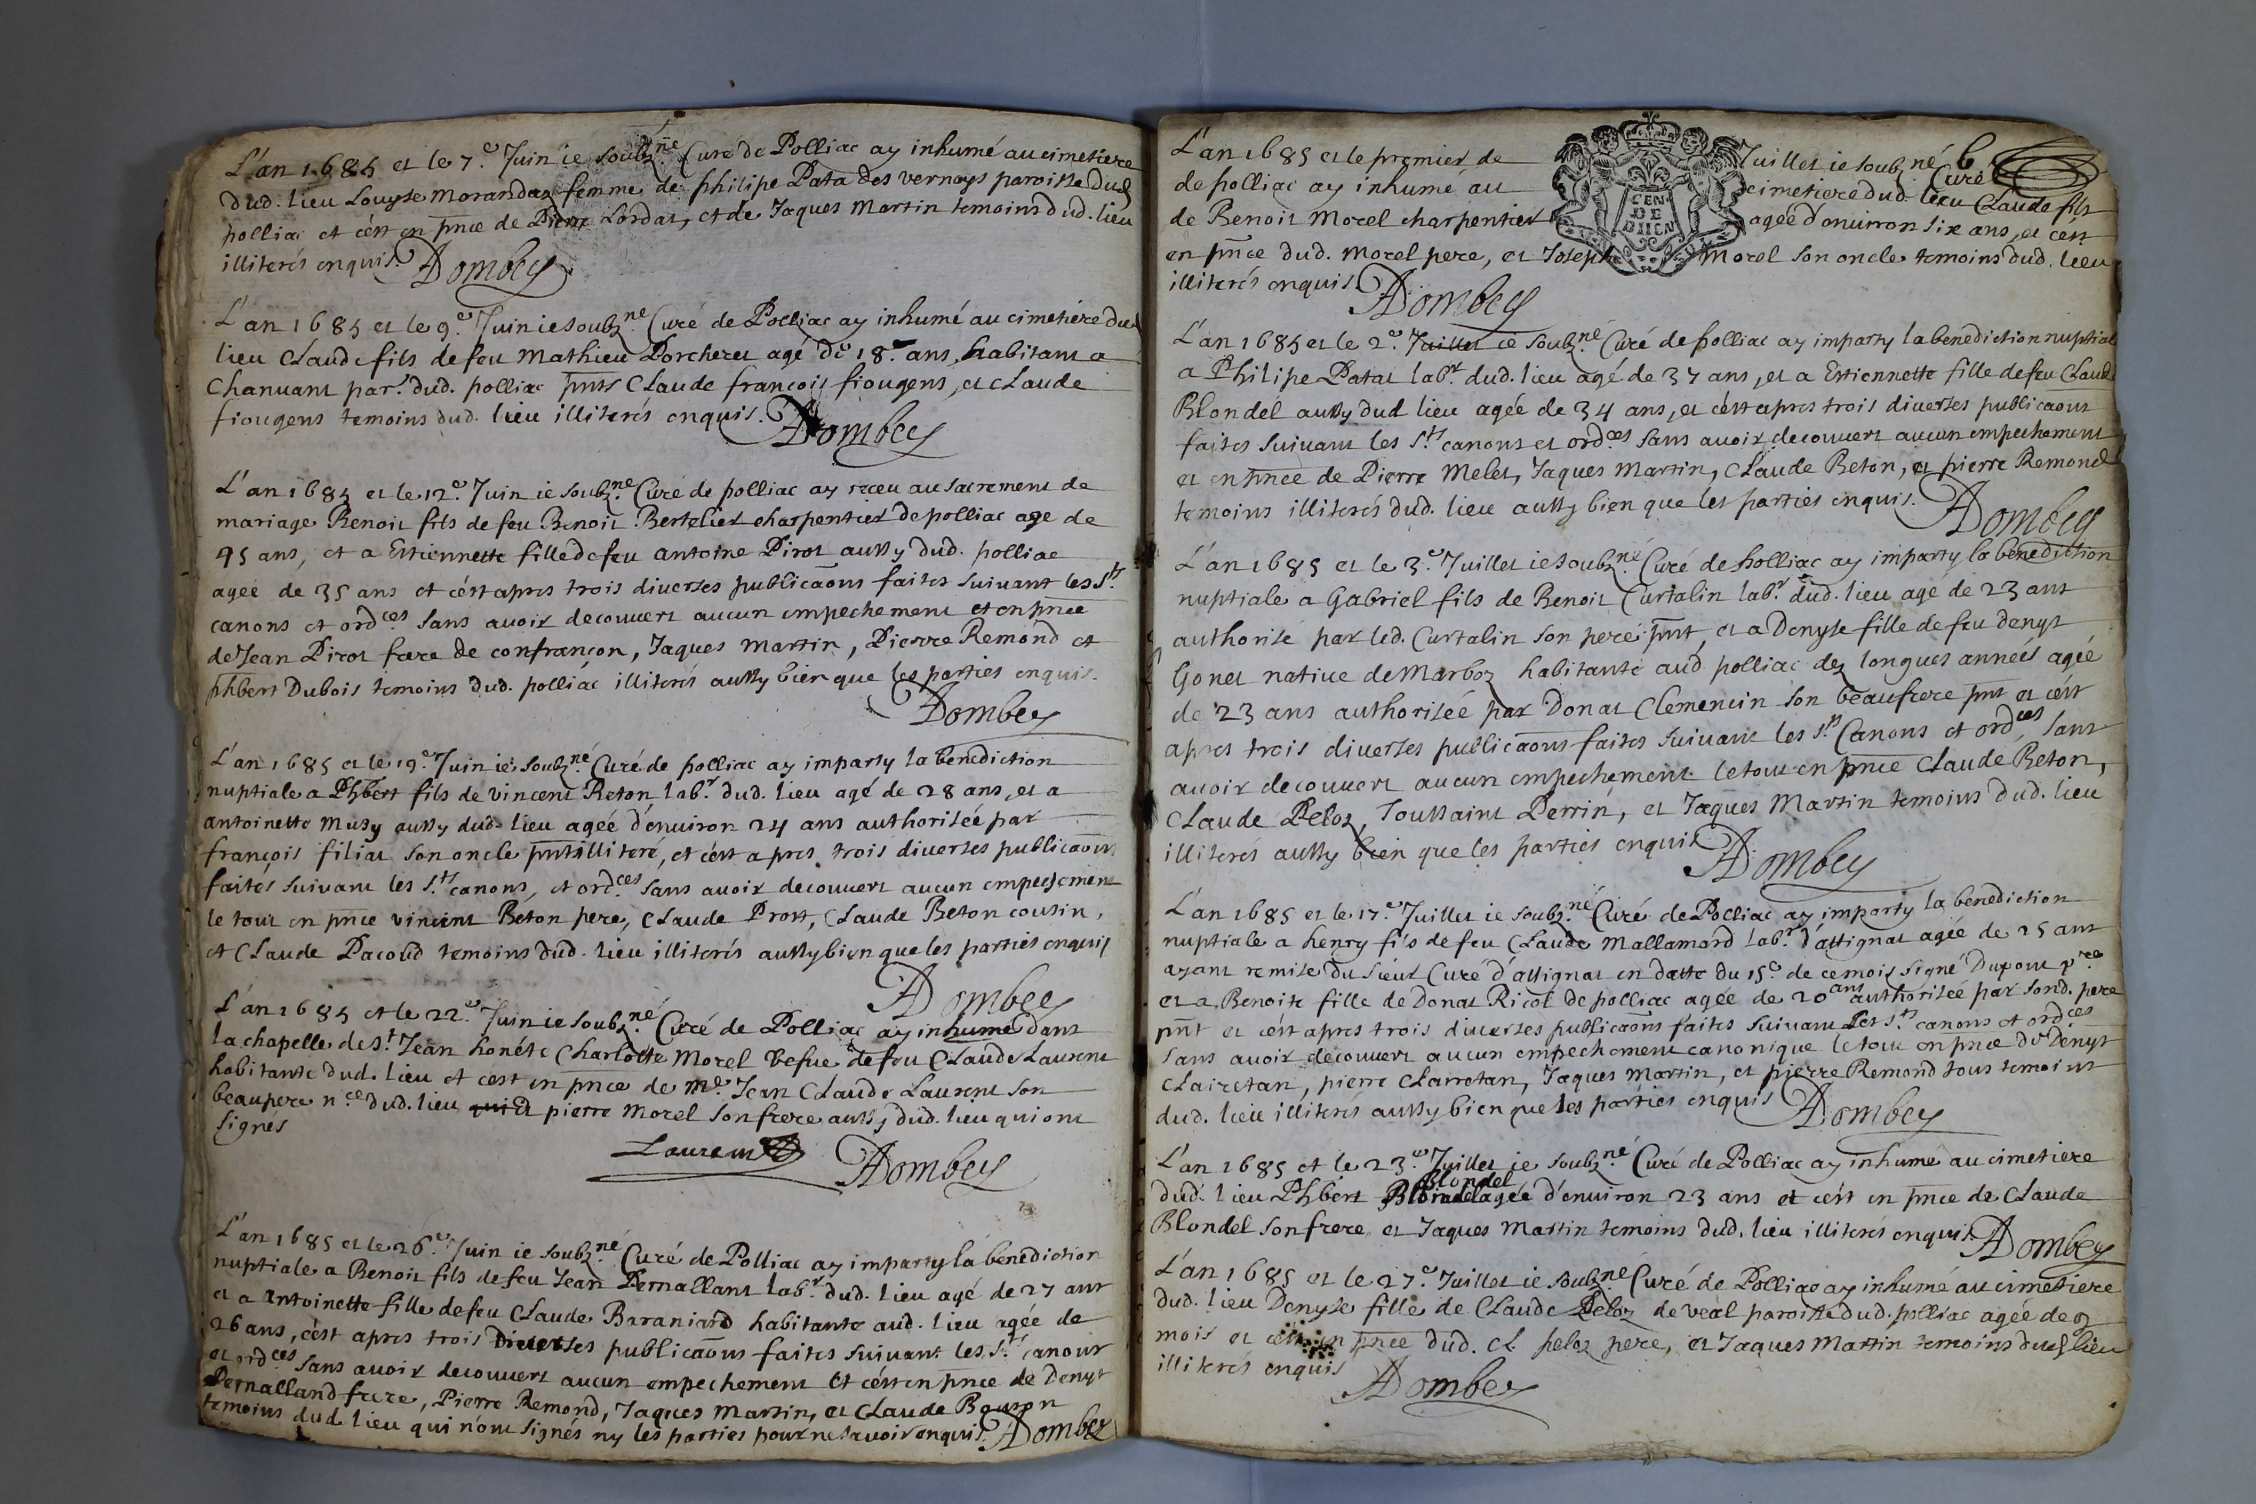 L'an 1685 et le 7.e Juin ie soubz.né Curé de Polliac ay inhumé au cimetiere
dud. lieu Louyse Morandaz femme de philipe Pata des vernays paroisse dud.
polliac et cést en pñce de Pierre Lordat, et de Jaques Martin temoins dud. lieu
illiterés enquis. ADombey
L'an 1685 et le 9.e Juin ie soubz.né Curé de Polliac ay inhumé au cimetiere dud
lieu Claude fils de feu Mathieu Porcheret agé de 18. ans, habitant a
Chanuant par. dud. polliac pnts Claude françois fiougens, et Claude
fiougens temoins dud. lieu illiterés enquis. ADombey
L'an 1685 et le 12.e Juin ie soubz.né Curé de polliac ay receu au sacrement de
mariage Benoit fils de feu Benoit Bertelier charpentier de polliac age de
45 ans, et a Estiennette fille de feu antoine Pirot aussy dud. polliac
ageé de 35 ans et cést apres trois diuerses publicaõns faites suiuant les S.ts
canons et ord.ces sans auoir decouuert aucun empechement et en pñce
de Jean Pirot frere de confrançon, Jaques Martin, Pierre Remond et
phbert Dubois temoins dud. polliac illiterés aussy bien que les parties enquis.
ADombey
L'an 1685 et le 19.e Juin ie soubz.né Curé de polliac ay imparty la benediction
nuptiale a Phbert fils de vincent Beton lab.r dud. lieu agé de 28 ans, et a
antoinette Musy aussy dud. lieu ageé d'enuiron 24 ans authoriseé par
françois filiat son oncle pnt illiteré, et cést apres trois diuerses publicaõns
faites suiuant les S.ts canons, et ord.ces sans auoir decouuert aucun empechement
le tout en pñce vincent Beton pere, Claude Prost, Claude Beton cousin,
et Claude Pacoud temoins dud. lieu illiterés aussy bien que les parties enquis
ADombey
L'an 1685 et le 22.e Juin ie soubz.né Curé de Polliac ay inhumé dans
la chapelle de St Jean honéte Charlotte Morel vefue de feu Claude Laurent
habitante dud. lieu et cést en pñce de Me. Jean Claude Laurent son
beaupere n.re dud. lieu et pierre Morel son frere aussy dud. lieu qui ont
signés
Laurent ADombey
L'an 1685 et le 26.e Juin ie soubz.né Curé de Polliac ay imparty la benediction
nuptiale a Benoit fils de feu Jean Pernallant lab.r dud. lieu agé de 27 ans
et a Antoinette fille de feu Claude Baraniard habitante aud. lieu ageé de
26 ans, cést apres trois diuerses publicaõns faites suiuant les S.ts canons
et ord.ces sans auoir decouuert aucun empechement et cést en pñce de Denys
Pernalland frere, Pierre Remond, Jaques Martin, et Claude Bouson
temoins dud. lieu qui n'ont signés ny les parties pour ne sauoir enquis. ADombey
L'an 1685 et le premier de Juillet ie soubz.né Curé
de polliac ay inhumé au cimetiere dud. lieu Claude fils
de Benoit Morel charpentier ageé d'enuiron six ans, et cést
GEN
DE
BIIEN
en pñce dud. Morel pere, et Joseph Morel son oncle temoins dud. lieu
illiterés enquis. ADombey
L'an 1685 et le 2.e Juillet ie soubz.né Curé de polliac ay imparty la benediction nuptiale
a Philipe Patat lab.r dud. lieu agé de 37 ans, et a Estiennette fille de feu Claude
Blondel aussy dud lieu ageé de 34 ans, et cést apres trois diuerses publicaõns
faites suiuant les S.ts canons et ord.ces sans auoir decouuert aucun empechement
et en pñce de Pierre Melet, Jaques Martin, Claude Beton, et pierre Remond
temoins illiterés dud. lieu aussy bien que les parties enquis. ADombey
L'an 1685 et le 3.e Juillet ie soubz.né Curé de polliac ay imparty la benediction
nuptiale a Gabriel fils de Benoit Curtalin lab.r dud. lieu agé de 23 ans
authorisé par led. Curtalin son pere pnt, et a Denyse fille de feu Denys
Gonet natiue de Marboz habitante aud polliac dez longues anneés ageé
de 23 ans authoriseé par Donat Clemencin son beaufrere pnt et cést
apres trois diuerses publicaõns faites suiuant les S.ts Canons et ord.ces sans
auoir decouuert aucun empechement le tout en pñce Claude Beton,
Claude Peloz, Toussaint Perrin, et Jaques Martin temoins dud. lieu
illiterés aussy bien que les parties enquis ADombey
L'an 1685 et le 17.e Juillet ie soubz.né Curé de Polliac ay imparty la benediction
nuptiale a henry fils de feu Claude Mallamard lab.r d'attignat ageé de 25 ans
ayant remise du sieur Curé d'attignat en datte du 15.e de ce mois signé Dupont p.re
et a Benoite fille de Donat Ricol de polliac ageé de 20 ans authoriseé par sond. pere
pnt et cést apres trois diuerses publicaõns faites suiuant les S.ts canons et ord.ces
sans auoir decouuert aucun empechement canonique le tout en pñce de Denys
Clairetan, pierre Clarretan, Jaques Martin, et pierre Remond tous temoins
dud. lieu illiterés aussy bien que les parties enquis ADombey
L'an 1685 et le 23.e Juillet ie soubz.né Curé de Polliac ay inhumé au cimetiere
dud. lieu Phbert Blondel ageé d'enuiron 23 ans et cést en pñce de Claude
Blondel son frere et Jaques Martin temoins dud. lieu illiterés enquis. ADombey
L'an 1685 et le 27.e Juillet ie soubz.né Curé de Polliac ay inhumé au cimetiere
dud. lieu Denyse fille de Claude Peloz de veal paroisse dud. polliac ageé de 9
mois et cést en pñce dud. Cl. peloz pere, et Jaques Martin temoins dud. lieu
illiterés enquis ADombey